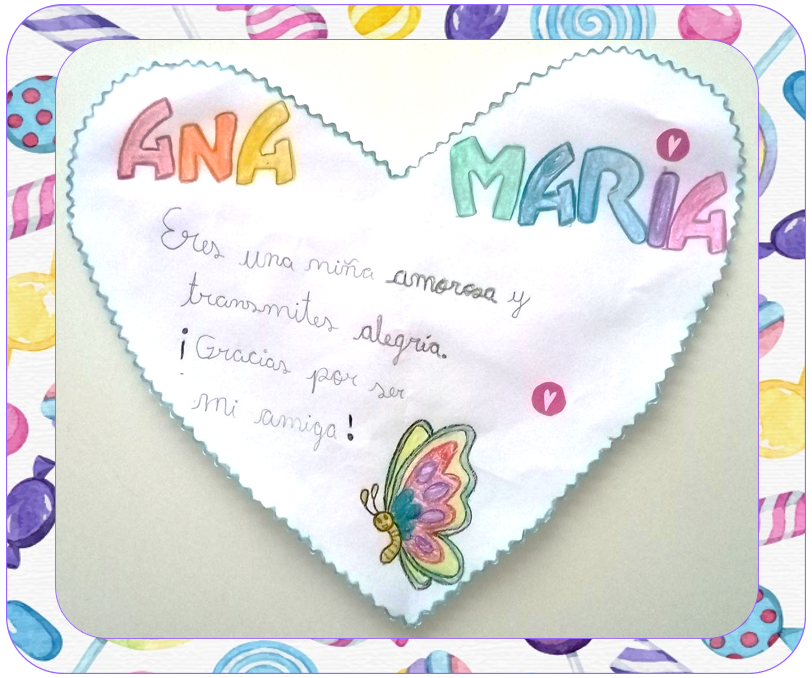 ANA MARIA
Eres una niña amorosa y
transmites alegría.
¡Gracias por ser
mi amiga!